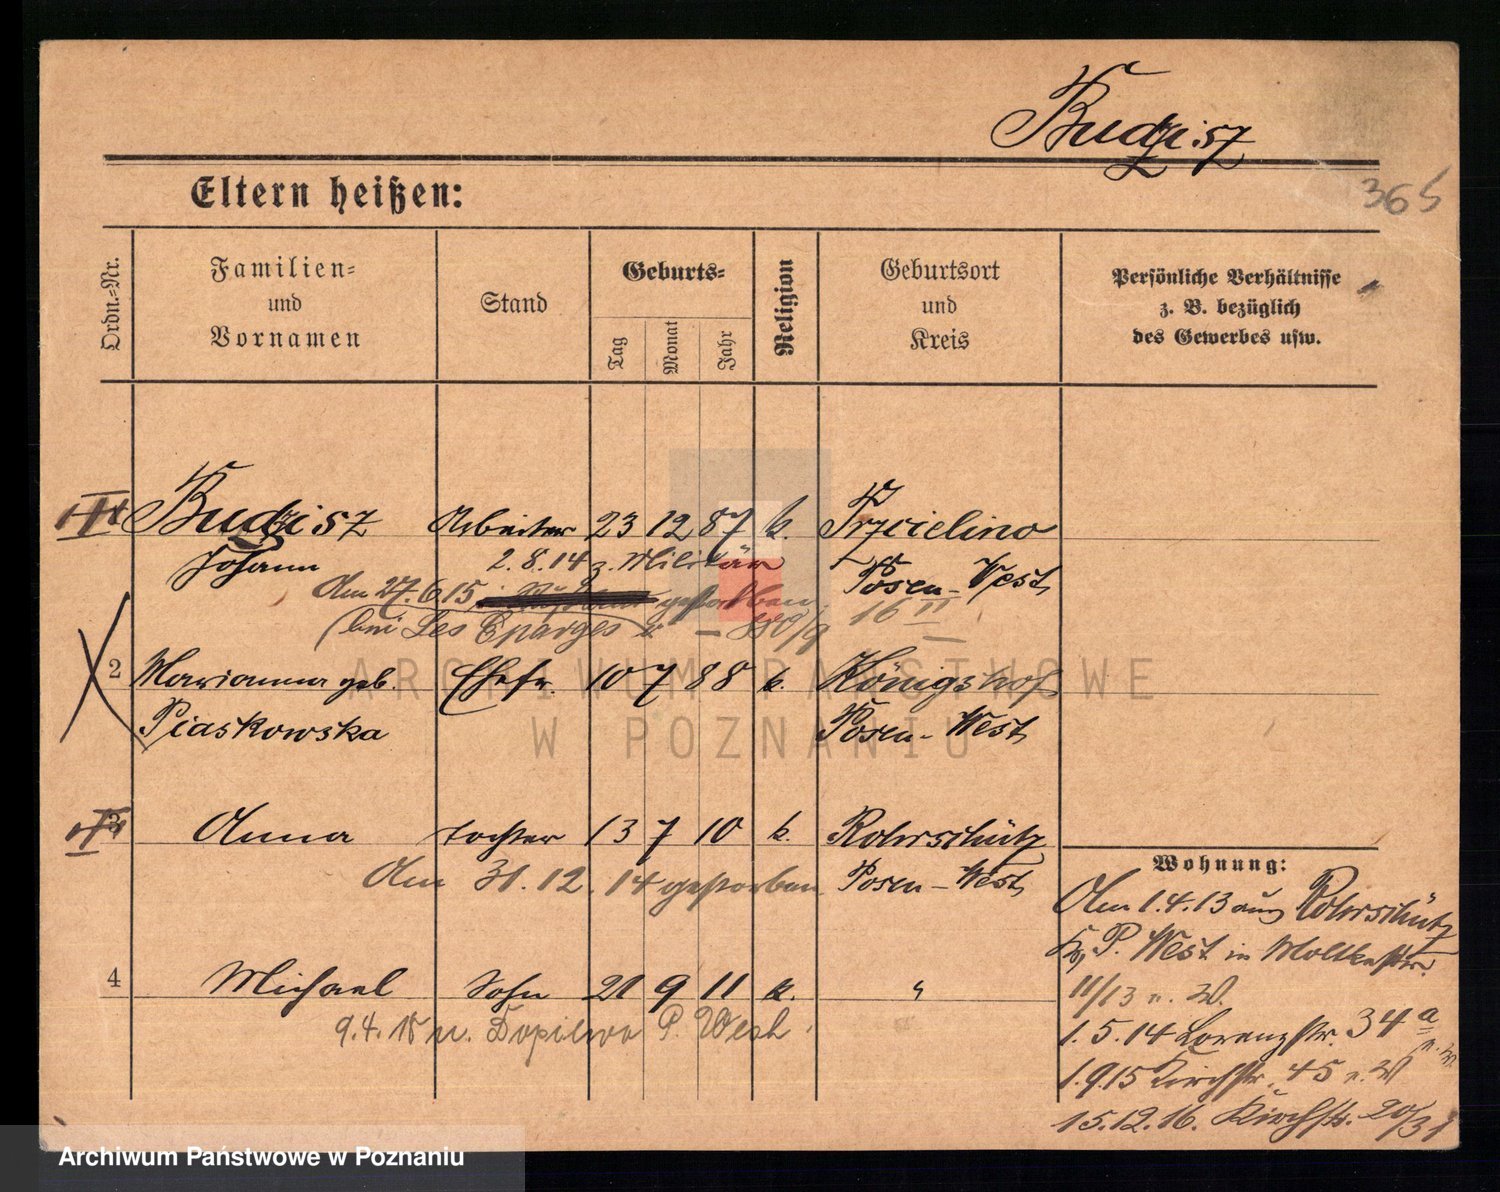 Budzisz
365
Eltern heißen:
Ordn.-Nr.
Familien-
und
Vornamen
Stand
Geburts-
Tag
Monat
Jahr
Religion
Geburtsort
und
Kreis
Persönliche Verhältnisse
z. B. bezüglich
des Gewerbes usw.
Budzisz Arbeiter 23 12 87 k. Trzcielino
Johann 2.8.14 z. Militär Posen-West
Am 27.6.15 gestorben 16
(bei Les Eparges
2 Marianna geb. Ehefr. 10 7 88 k. Königshof
Piaskowska Posen-West
3 Anna Tochter 13 7 10 k. Rohrschütz
Am 31.12.14 gestorben Posen-West
4 Michael Sohn 21 9 11 k. "
9.4.15 n. Dopiewo P. West
Wohnung:
Am 1.4.13 aus Rohrschütz
Kr. P. West in Moltkestr.
11/13 n. W.
1.5.14 Lorenzstr. 34a
n. W.
1.9.15 Kirchstr. 45 n. W
15.12.16. Kirchstr. 20/31
ARCHIWUM PAŃSTWOWE
W POZNANIU
Archiwum Państwowe w Poznaniu